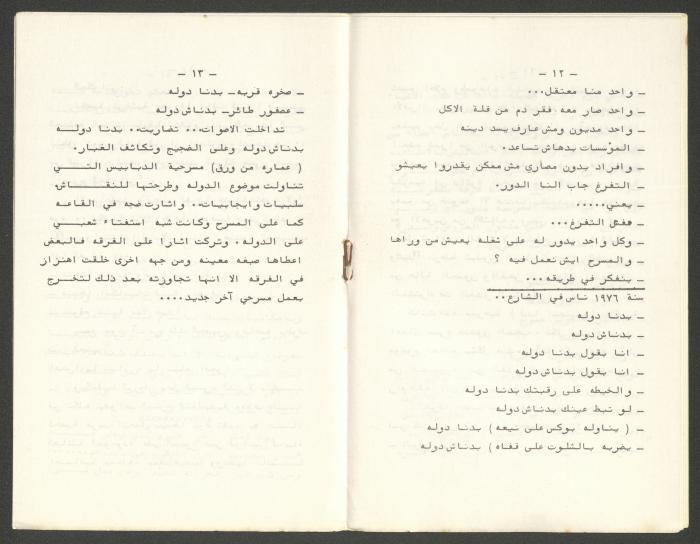 - ١٢ -
ـ واحد منا معتقل...
ـ واحد صار معه فقر دم من قلة الاكل
ـ واحد مديون ومش عارف يسد دينه
ـ المؤسسات بدهاش تساعد.
ـ وافراد بدون مصاري مش ممكن يقدروا يعيشو
ـ التفرغ جاب النا الدور.
ـ يعني.....
ـ التفرغ...
ـ وكل واحد يدور له على شغله يعيش من وراها
ـ والمسرح ايش نعمل فيه ؟
ـ بنفكر في طريقه...
سنة ١٩٧٦ ناس في الشارع..
ـ بدنا دوله
ـ بدناش دوله
ـ انا بقول بدنا دوله
ـ انا بقول بدناش دوله
ـ والخيطه على رقبتك بدنا دوله
ـ لو تبط عينك بدناش دوله
ـ ( يناوله بوكس على نيعه ) بدنا دوله
ـ يضربه بالشلوت على قفاه ) بدناش دوله
- ١٣ -
ـ صخره قربه ـ بدنا دوله
ـ عصفور طائر ـ بدناش دوله
تداخلت الاصوات.. تضاربت.. بدنا دولـه
بدناش دوله وعلى الضجيج وتكاثف الغبار.
( عماره من ورق) مسرحية الدبابيس التـي
تناولت موضوع الدوله وطرحتها للنقـاش
سلبيات وايجابيات.. واثارت ضجه في القاعه
كما على المسرح وكانت شبه استفتاء شعبـي
على الدوله. وتركت اثارا على الفرقه فالبعض
اعطاها صبغه معينه ومن جهه اخرى خلقت اهتزاز
في الفرقه الا انها تجاوزته بعد ذلك لتخـرج
بعمل مسرحي آخر جديد....